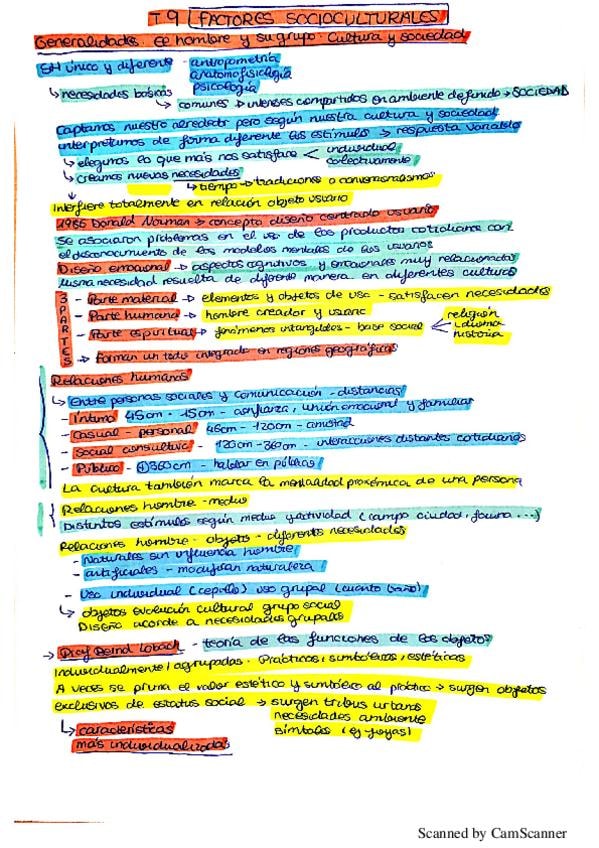 T 9 FACTORES SOCIOCULTURALES
Generalidades. El hombre y su grupo. Cultura y sociedad
SH único y diferente - antropometría
anatomofisiología
psicología
↳ necesidades básicas
↳ comunes → intereses compartidos en ambiente definido → SOCIEDAD
Captamos nuestro alrededor pero según nuestra cultura y sociedad
interpretamos de forma diferente los estímulos → respuesta variable
↳ elegimos lo que más nos satisface < individual
colectivamente
↳ creamos nuevas necesidades
↳ tiempo → tradiciones o convencionalismos
Interfiere totalmente en relación objeto usuario
1986 Donald Norman → concepto diseño centrado usuario
Se asociaron problemas en el uso de los productos cotidianos con
el desconocimiento de los modelos mentales de los usuarios
Diseño emocional → aspectos cognitivos y emocionales muy relacionados
misma necesidad resuelta de diferente manera en diferentes culturas
3 PARTES
- Parte material → elementos y objetos de uso - satisfacen necesidades
- Parte humana → hombre creador y usuario
- Parte espiritual → fenómenos intangibles - base social < religión
idioma
historia
→ forman un todo integrado en regiones geográficas
Relaciones humanas
↳ Entre personas sociales y comunicación - distancias
- Íntimo 45cm - 15cm - confianza, unión emocional y familiar
- Casual - personal 46cm - 120cm - amistad
- Social consultivo - 120cm - 360cm - interacciones distantes cotidianas
- Público - (+)360cm - hablar en público
La cultura también marca la mentalidad proxémica de una persona
Relaciones hombre - medio
Distintos estímulos según medio y actividad (campo, ciudad, fauna...)
Relaciones hombre - objeto - diferentes necesidades
- Naturales sin influencia hombre
- artificiales - modifican naturaleza
- Uso individual (cepillo) uso grupal (cuarto baño)
↳ objetos evolución cultural grupo social
Diseño acorde a necesidades grupales
→ Prof Bernd Löbach - teoría de las funciones de los objetos
Individualmente / agrupadas. Prácticas, simbólicas, estéticas
A veces se prima el valor estético y simbólico al práctico → surgen objetos
exclusivos de estatus social → surgen tribus urbanas
necesidades ambiente
símbolos (ej joyas)
↳ características
más individualizadas
Scanned by CamScanner